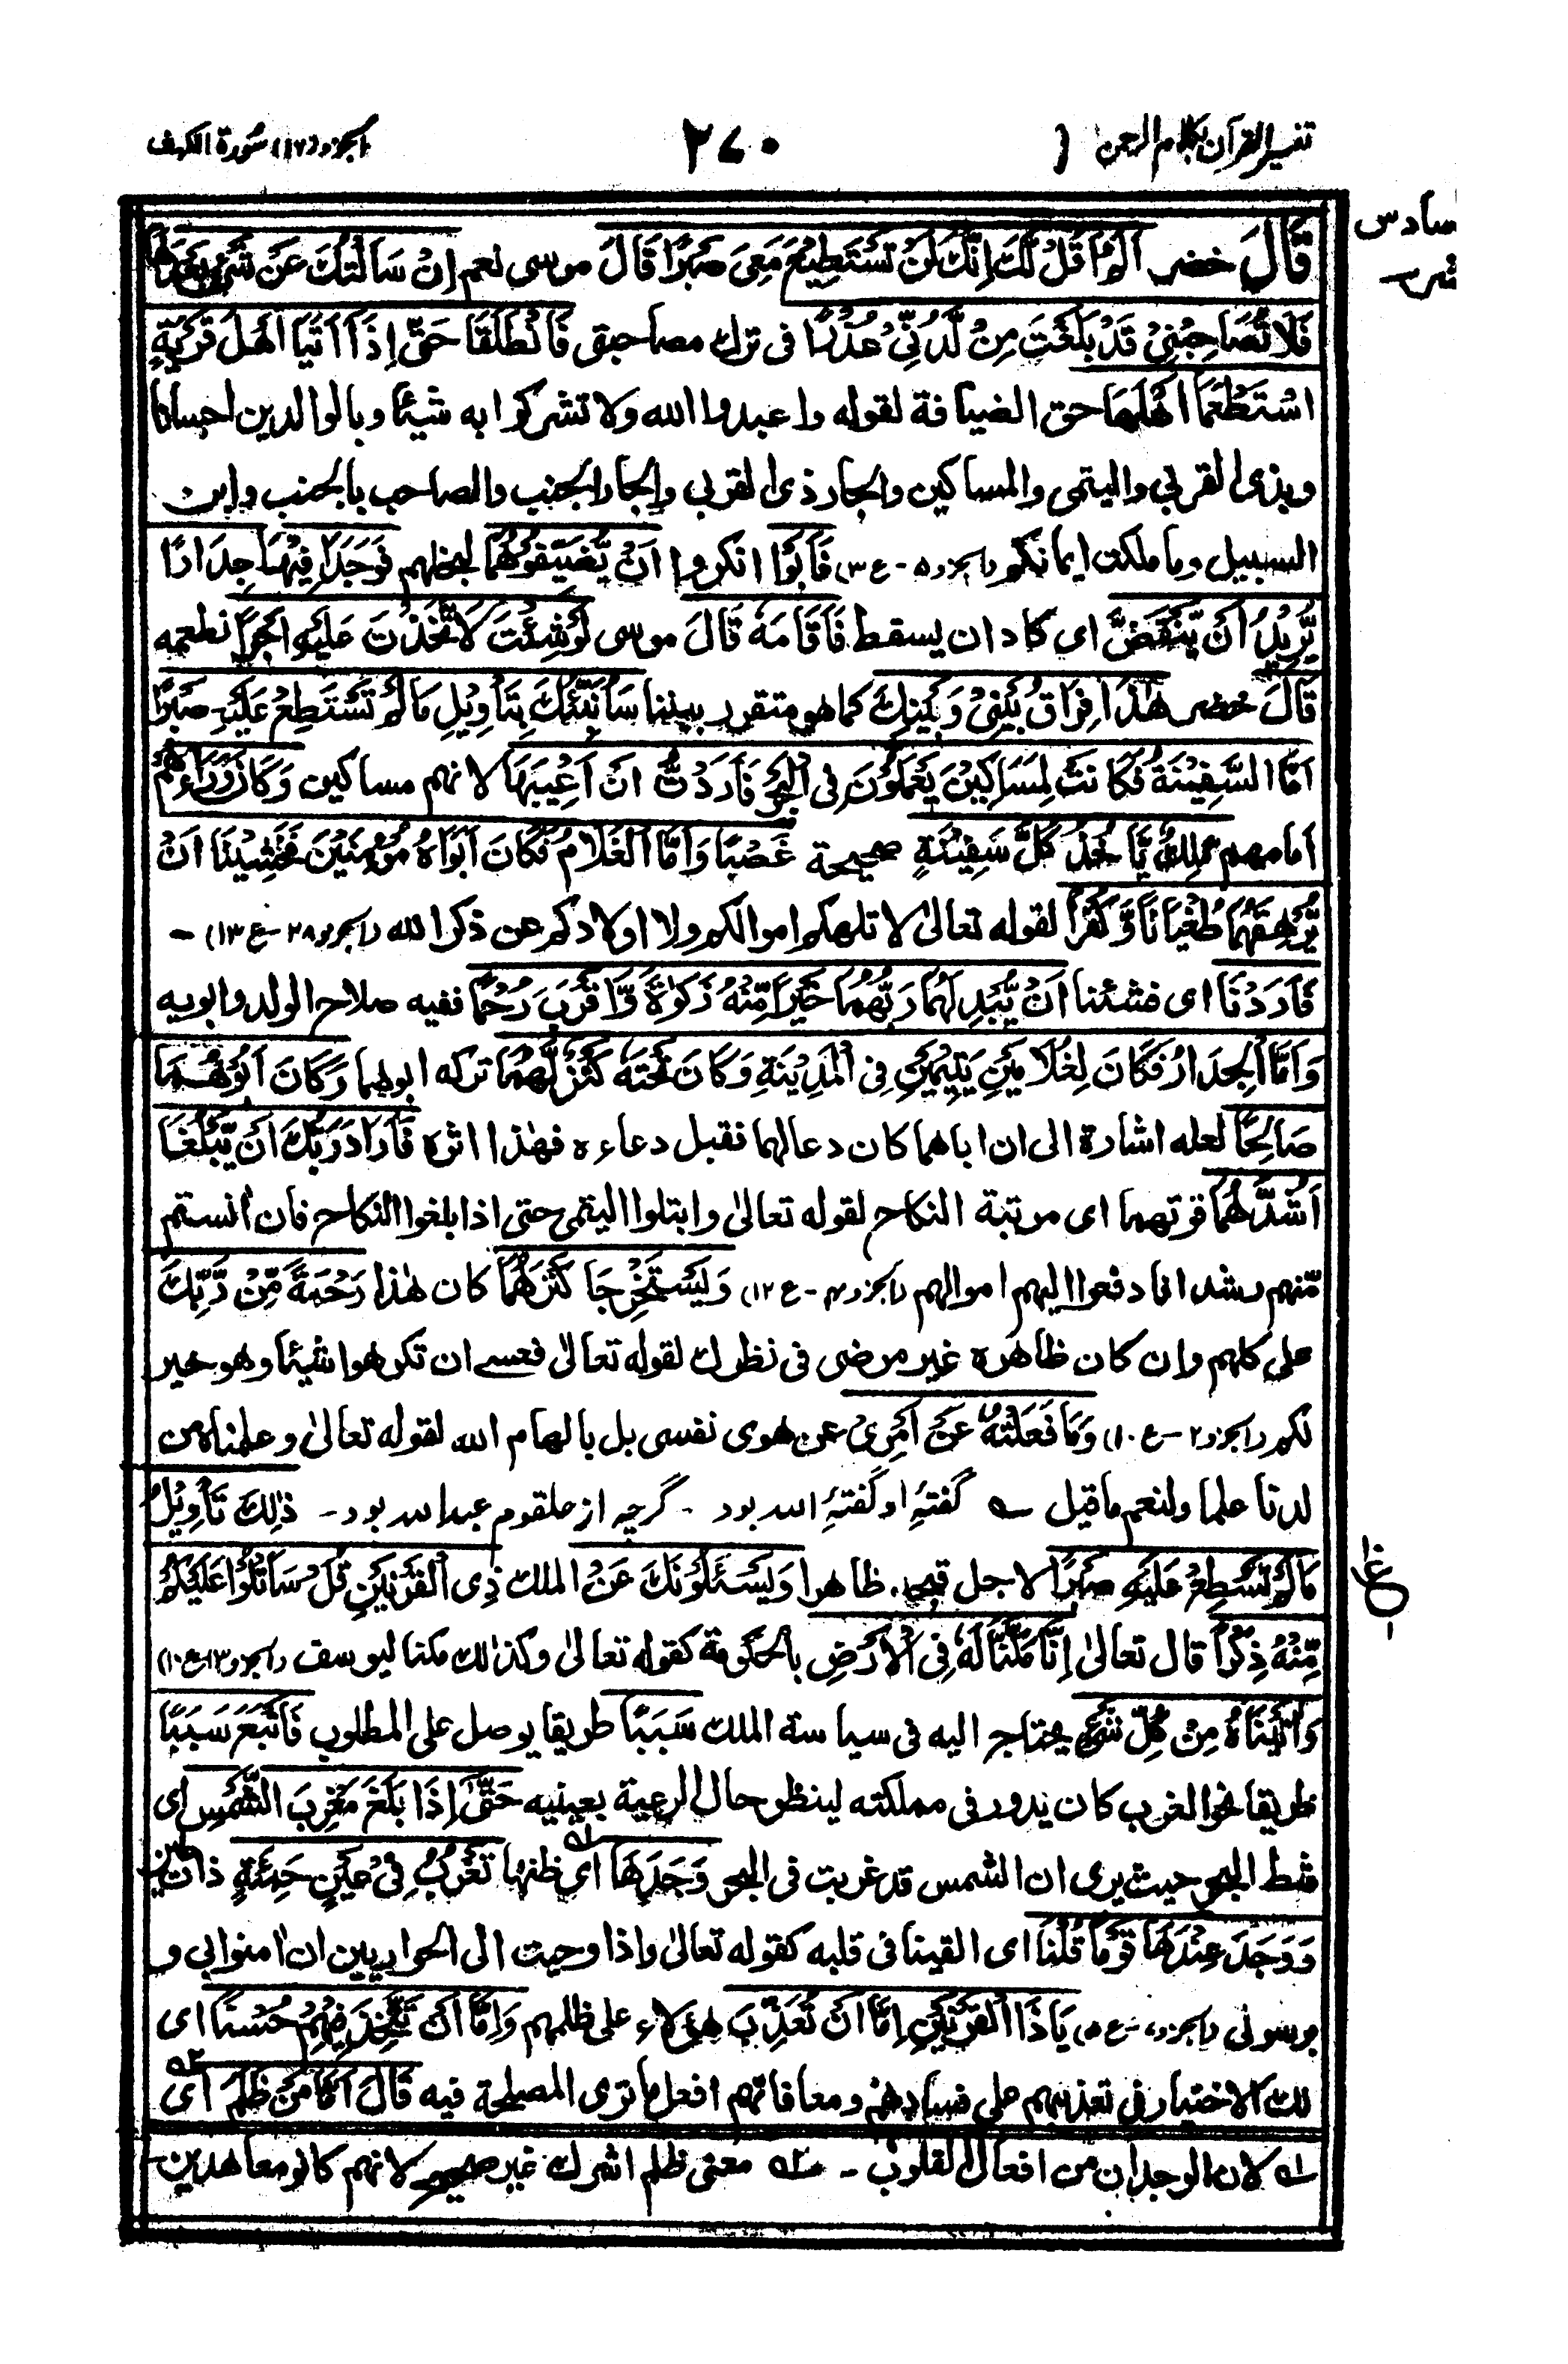 تفسير القرآن بكلام الرحمن
٢٧٠
الجزو (١٧) سُورة الكهف
سادس
قَالَ خضر اَلَمْ اَقُلْ لَّكَ اِنَّكَ لَنْ تَسْتَطِيْعَ مَعِيَ صَبْرًا قَالَ موسى نعم اِنْ سَاَلْتُكَ عَنْ شَيْءٍ بَعْدَهَا
فَلَا تُصَاحِبْنِيْ قَدْ بَلَغْتَ مِنْ لَّدُنِّيْ عُذْرًا فى ترك مصاحبتى فَانْطَلَقَا حَتّٰى اِذَا اَتَيَا اَهْلَ قَرْيَةٍ
اسْتَطْعَمَا اَهْلَهَا حق الضيافة لقوله واعبدوا الله ولا تشركوا به شيئا وبالوالدين احسانا
وبذى القربى واليتمى والمساكين والجار ذى القربى والجار الجنب والصاحب بالجنب وابن
السبيل وما ملكت ايمانكم (الجزو ٥ - ع ٣) فَاَبَوْا انكروا اَنْ يُّضَيِّفُوْهُمَا لبخلهم فَوَجَدَا فِيْهَا جِدَارًا
يُّرِيْدُ اَنْ يَّنْقَضَّ اى كاد ان يسقط فَاَقَامَهٗ قَالَ موسى لَوْ شِئْتَ لَاتَّخَذْتَ عَلَيْهِ اَجْرًا نطعمه
قَالَ خضر هٰذَا فِرَاقُ بَيْنِيْ وَبَيْنِكَ كما هو متقرر بيننا سَاُنَبِّئُكَ بِتَاْوِيْلِ مَا لَمْ تَسْتَطِعْ عَلَيْهِ صَبْرًا
اَمَّا السَّفِيْنَةُ فَكَانَتْ لِمَسَاكِيْنَ يَعْمَلُوْنَ فِى الْبَحْرِ فَاَرَدْتُّ اَنْ اَعِيْبَهَا لانهم مساكين وَكَانَ وَرَاءَهُمْ
امامهم مَّلِكٌ يَّاْخُذُ كُلَّ سَفِيْنَةٍ صحيحة غَصْبًا وَاَمَّا الْغُلَامُ فَكَانَ اَبَوَاهُ مُؤْمِنَيْنِ فَخَشِيْنَا اَنْ
يُّرْهِقَهُمَا طُغْيَانًا وَّكُفْرًا لقوله تعالىٰ لا تلهكم اموالكم ولا اولادكم عن ذكر الله (الجزو ٢٨ - ع ١٣) -
فَاَرَدْنَا اى فشئنا اَنْ يُّبْدِلَهُمَا رَبُّهُمَا خَيْرًا مِّنْهُ زَكٰوةً وَّاَقْرَبَ رُحْمًا ففيه صلاح الولد وابويه
وَاَمَّا الْجِدَارُ فَكَانَ لِغُلَامَيْنِ يَتِيْمَيْنِ فِى الْمَدِيْنَةِ وَكَانَ تَحْتَهٗ كَنْزٌ لَّهُمَا تركه ابوهما وَكَانَ اَبُوْهُمَا
صَالِحًا لعله اشارة الى ان اباهما كان دعا لهما فقبل دعاءه فهٰذا اثره فَاَرَادَ رَبُّكَ اَنْ يَّبْلُغَا
اَشُدَّهُمَا قوتهما اى مرتبة النكاح لقوله تعالىٰ وابتلوا اليتمى حتى اذا بلغوا النكاح فان اٰنستم
منهم رشدا فادفعوا اليهم اموالهم (الجزو ٤ - ع ١٢) وَيَسْتَخْرِجَا كَنْزَهُمَا كان هٰذا رَحْمَةً مِّنْ رَّبِّكَ
على كلهم وان كان ظاهره غير مرضى فى نظرك لقوله تعالىٰ فعسے ان تكرهوا شيئا وهو خير
لكم (الجزو ٢ - ع ١٠) وَمَا فَعَلْتُهٗ عَنْ اَمْرِيْ عن هوى نفسى بل بالهام الله لقوله تعالىٰ وعلمناه من
لدنا علما ولنعم ما قيل ؎ گفتۂ او گفتۂ الله بود - گرچہ از حلقوم عبد الله بود - ذٰلِكَ تَاْوِيْلُ
مَا لَمْ تَسْطِعْ عَلَيْهِ صَبْرًا لاجل قبحه ظاهرا وَيَسْئَلُوْنَكَ عَنْ الملك ذِى الْقَرْنَيْنِ قُلْ سَاَتْلُوْا عَلَيْكُمْ
مِّنْهُ ذِكْرًا قال تعالىٰ اِنَّا مَكَّنَّا لَهٗ فِى الْاَرْضِ بالحكومة كقوله تعالىٰ وكذلك مكنا ليوسف (الجزو ١٣ ع ١)
وَاٰتَيْنَاهُ مِنْ كُلِّ شَيْءٍ يحتاج اليه فى سياسة الملك سَبَبًا طريقا يوصل على المطلوب فَاَتْبَعَ سَبَبًا
طريقا نحو الغرب كان يدور فى مملكته لينظر حال الرعية بعينيه حَتّٰى اِذَا بَلَغَ مَغْرِبَ الشَّمْسِ اى
شط البحر حيث يرى ان الشمس قد غربت فى البحر وَجَدَهَا اى ظنها تَغْرُبُ فِيْ عَيْنٍ حَمِئَةٍ ذات طين
وَوَجَدَ عِنْدَهَا قَوْمًا قُلْنَا اى القينا فى قلبه كقوله تعالىٰ واذ اوحيت الى الحواريين ان اٰمنوا بى و
برسولى (الجزو ٧ - ع ٥) يَا ذَا الْقَرْنَيْنِ اِمَّا اَنْ تُعَذِّبَ هؤلاء على ظلمهم وَاِمَّا اَنْ تَتَّخِذَ فِيْهِمْ حُسْنًا اى
لك الاختيار فى تعذيبهم على فسادهم ومعافاتهم افعل ما ترى المصلحة فيه قَالَ اَمَّا مَنْ ظَلَمَ اى
ـ١ـه لان الوجدان من افعال القلوب - ـ٢ـه معنى ظلم اشرك غير صحيح لانهم كانو معاهدين